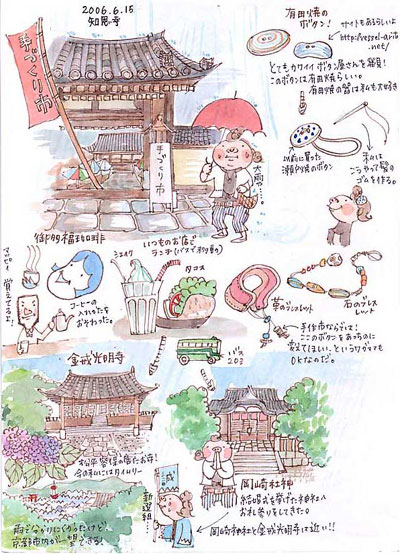 2006.6.15
知恩寺
手づくり市
手づくり市
大雨や…。
有田焼の
ボタン!
サイトもあるらしいよ
http://vessel-arita
.net/
とてもカワイイボタン屋さんを発見!
このボタンは有田焼らしい。
有田焼の器は私も大好き
以前に買った
瀬戸焼のボタン
私は
こうやって髪の
ゴムを作る。
御多福珈琲
いつものお店で
ランチ(バスで移動)
コーヒーの
入れかたを
おそわった。
シェイク
タコス
バス
203
革のブレスレット
石のブレス
レット
手作市ならでは!
ここのボタンをあっちのに
教えてほしい、というワガママも
OKなのだ。
金戒光明寺
松平容保の居たお寺!
今の私にはタイムリー
京都市内が一望できる!
新選組
岡崎神社
結婚式を挙げた神社へ
お礼参りをしてきた。
岡崎神社と金戒光明寺は近い!!